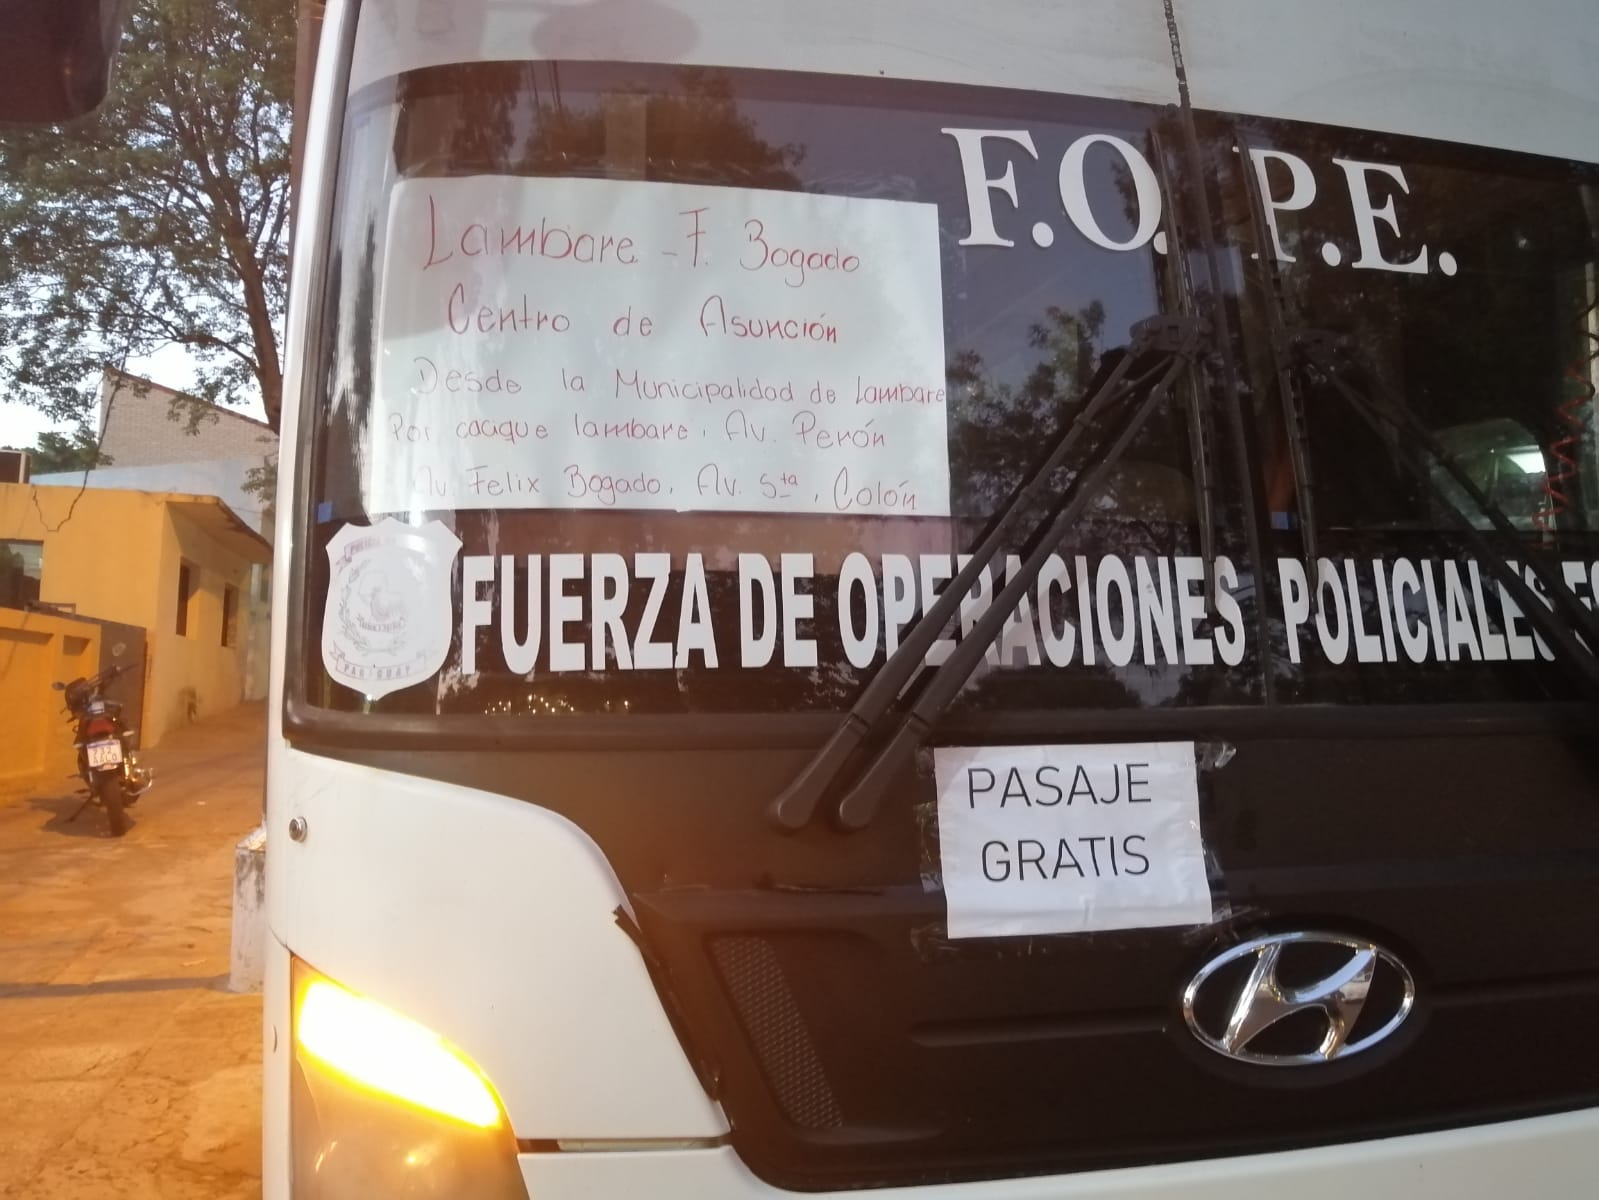 F.O.P.E.
Lambare - F. Bogado
Centro de Asunción
Desde la Municipalidad de Lambare
Por cacique lambare, Av. Perón
Av. Felix Bogado, Av. 5ta, Colón
FUERZA DE OPERACIONES POLICIALES ES
PARAGUAY
PASAJE
GRATIS